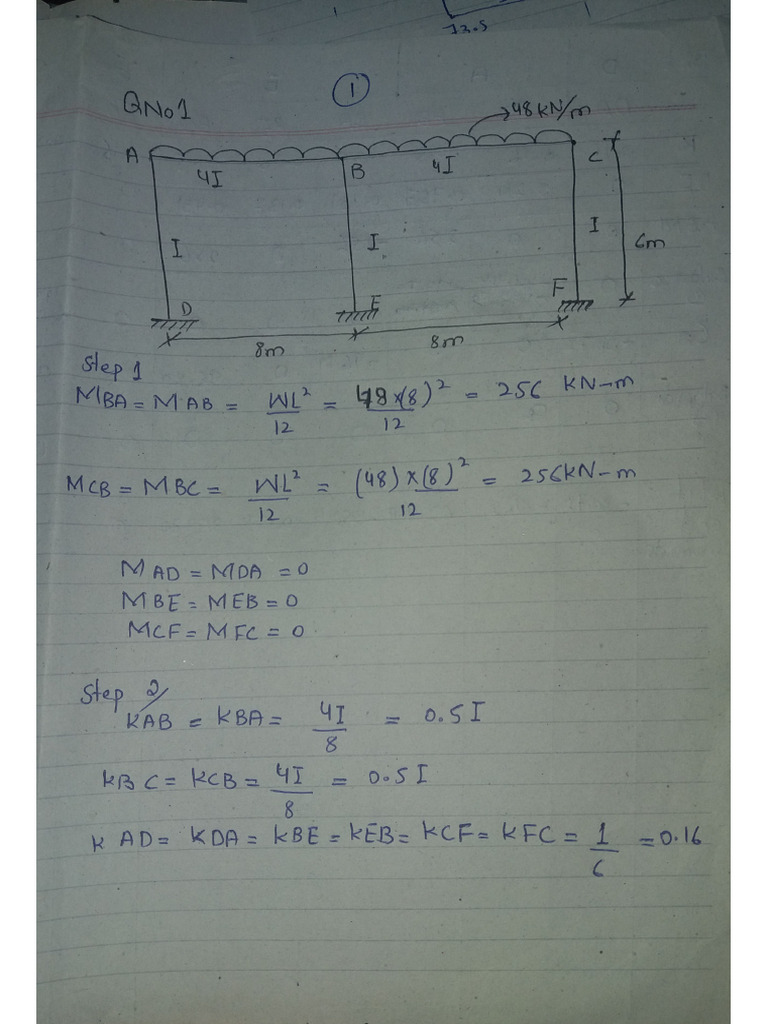 13.5
QNo1
1
48KN/m
A
B
C
4I
4I
I
I
I
6m
D
E
F
8m
8m
Step 1
MBA = MAB = WL²/12 = 48×(8)²/12 = 256 KN-m
MCB = MBC = WL²/12 = (48)×(8)²/12 = 256KN-m
MAD = MDA = 0
MBE = MEB = 0
MCF = MFC = 0
Step 2
KAB = KBA = 4I/8 = 0.5I
KBC = KCB = 4I/8 = 0.5I
KAD = KDA = KBE = KEB = KCF = KFC = 1/6 = 0.16